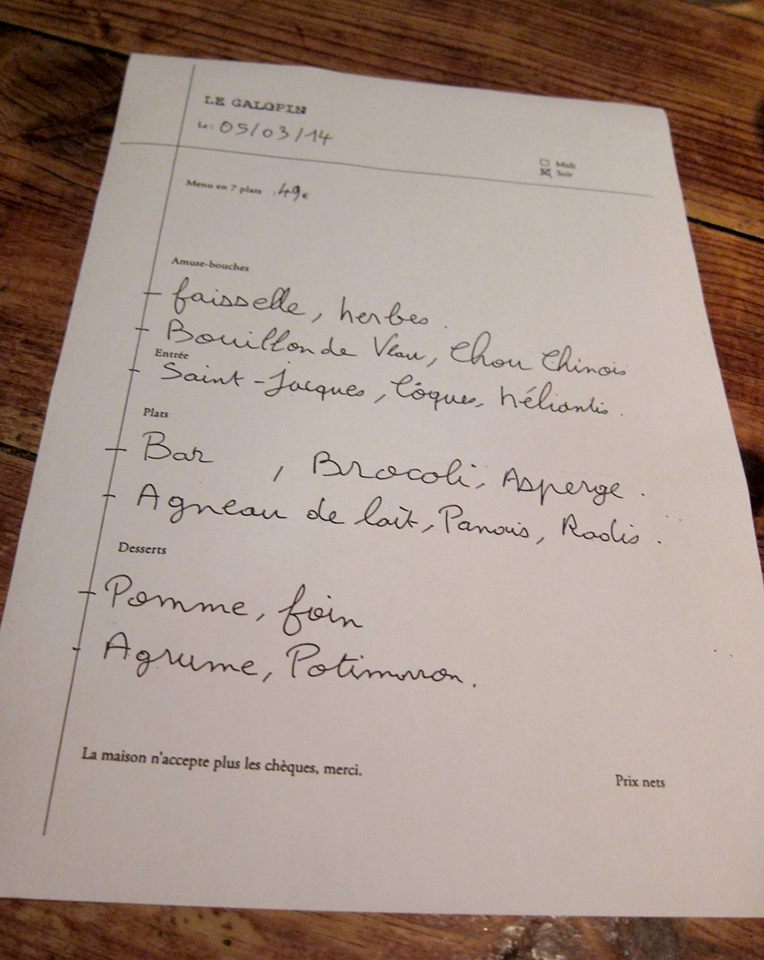 LE GALOPIN
Le: 05/03/14
Midi
Soir
Menu en 7 plats 49€
Amuse-bouches
faisselle, herbes.
Bouillon de Veau, Chou Chinois
Entrée
Saint-Jacques, Côques, héliantis.
Plats
Bar , Brocoli, Asperge.
Agneau de lait, Panais, Radis.
Desserts
Pomme, foin
Agrume, Potimarron.
La maison n'accepte plus les chèques, merci.
Prix nets